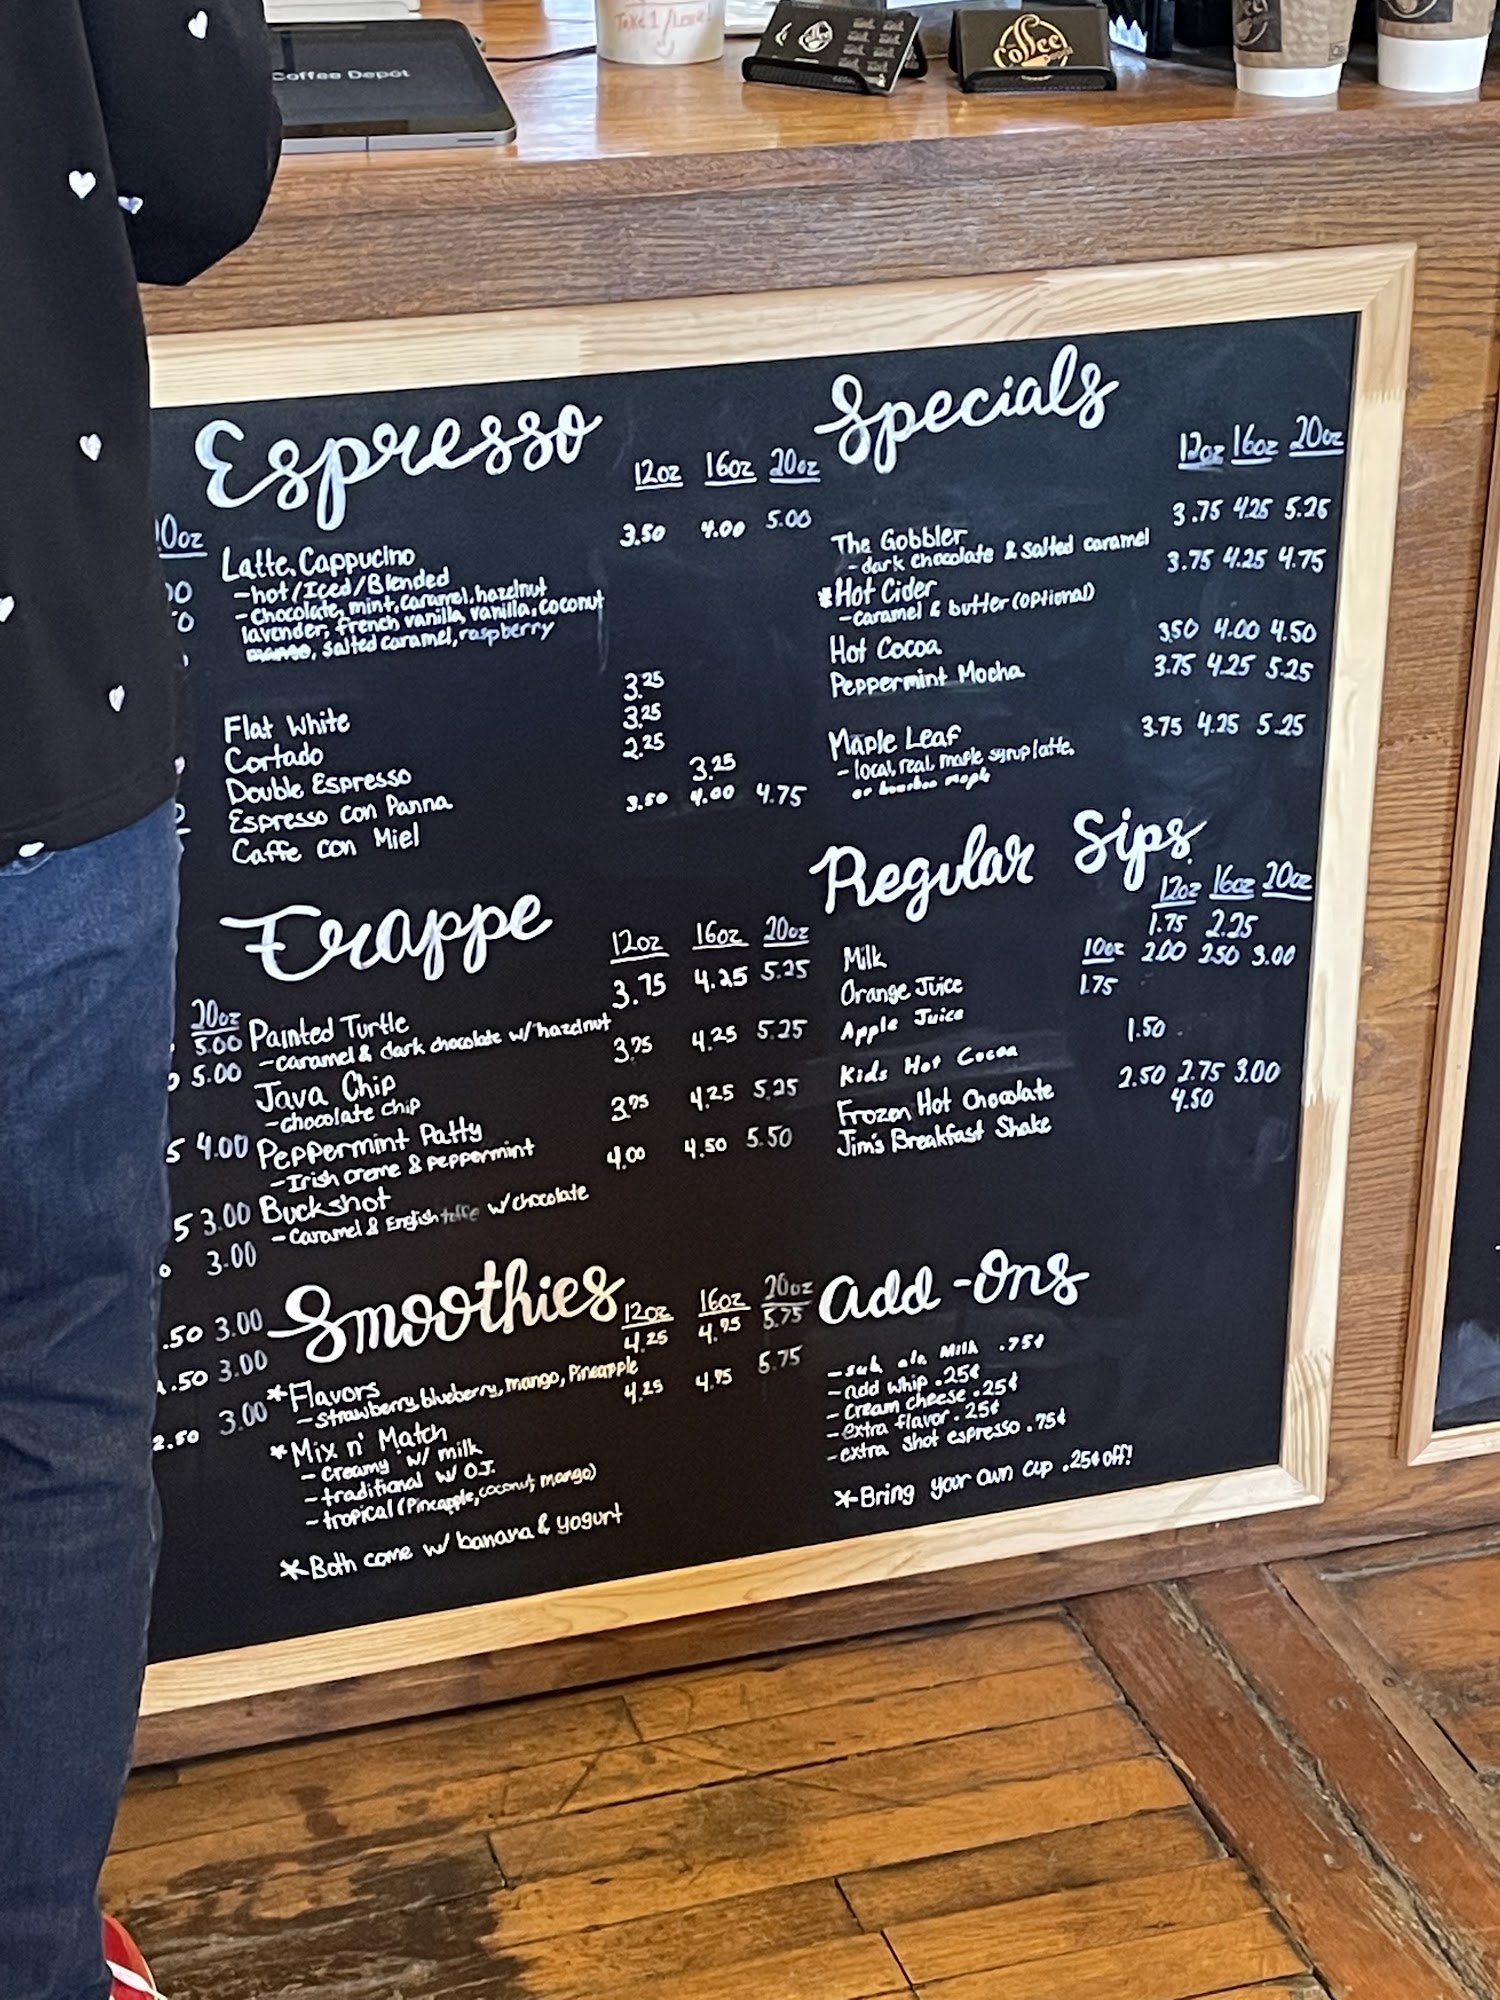 Take 1/Leave 1
Coffee Depot
Coffee
Espresso
12oz 16oz 20oz
Latte, Cappucino 3.50 4.00 5.00
-hot/Iced/Blended
-Chocolate, mint, caramel, hazelnut
lavender, french vanilla, vanilla, coconut
mango, salted caramel, raspberry
Flat White 3.25
Cortado 3.25
Double Espresso 2.25
Espresso con Panna 3.25
Caffe con Miel 3.50 4.00 4.75
Frappe
12oz 16oz 20oz
Painted Turtle 3.75 4.25 5.25
-caramel & dark chocolate w/ hazelnut
Java Chip 3.75 4.25 5.25
-chocolate chip
Peppermint Patty 3.75 4.25 5.25
-Irish creme & peppermint
Buckshot 4.00 4.50 5.50
-Caramel & English toffee w/ chocolate
Smoothies
12oz 16oz 20oz
*Flavors 4.25 4.95 5.75
-strawberry, blueberry, mango, Pineapple
*Mix n' Match 4.25 4.95 5.75
-creamy w/ milk
-traditional w/ O.J.
-tropical (Pineapple, coconut, mango)
*Both come w/ banana & yogurt
Specials
12oz 16oz 20oz
The Gobbler 3.75 4.25 5.25
-dark chocolate & salted caramel
*Hot Cider 3.75 4.25 4.75
-caramel & butter (optional)
Hot Cocoa 3.50 4.00 4.50
Peppermint Mocha 3.75 4.25 5.25
Maple Leaf 3.75 4.25 5.25
-local, real, maple syrup latte,
or bourbon maple
Regular Sips
12oz 16oz 20oz
Milk 1.75 2.25
Orange Juice 10oz 2.00 2.50 3.00
Apple Juice 1.75
Kids Hot Cocoa 1.50
Frozen Hot Chocolate 2.50 2.75 3.00
Jim's Breakfast Shake 4.50
Add-Ons
-sub alt. Milk .75¢
-add whip .25¢
-cream cheese .25¢
-extra flavor .25¢
-extra shot espresso .75¢
*Bring your own cup .25¢ off!
20oz
5.00
5.00
5 4.00
5 3.00
3.00
.50 3.00
.50 3.00
2.50 3.00